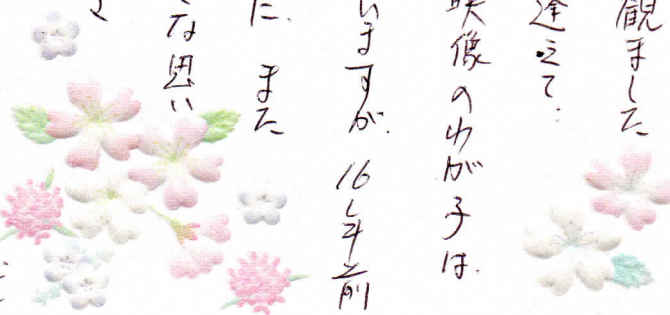 観ました
逢えて、
映像のわが子は、
いますが、16年前
に、また
な思い